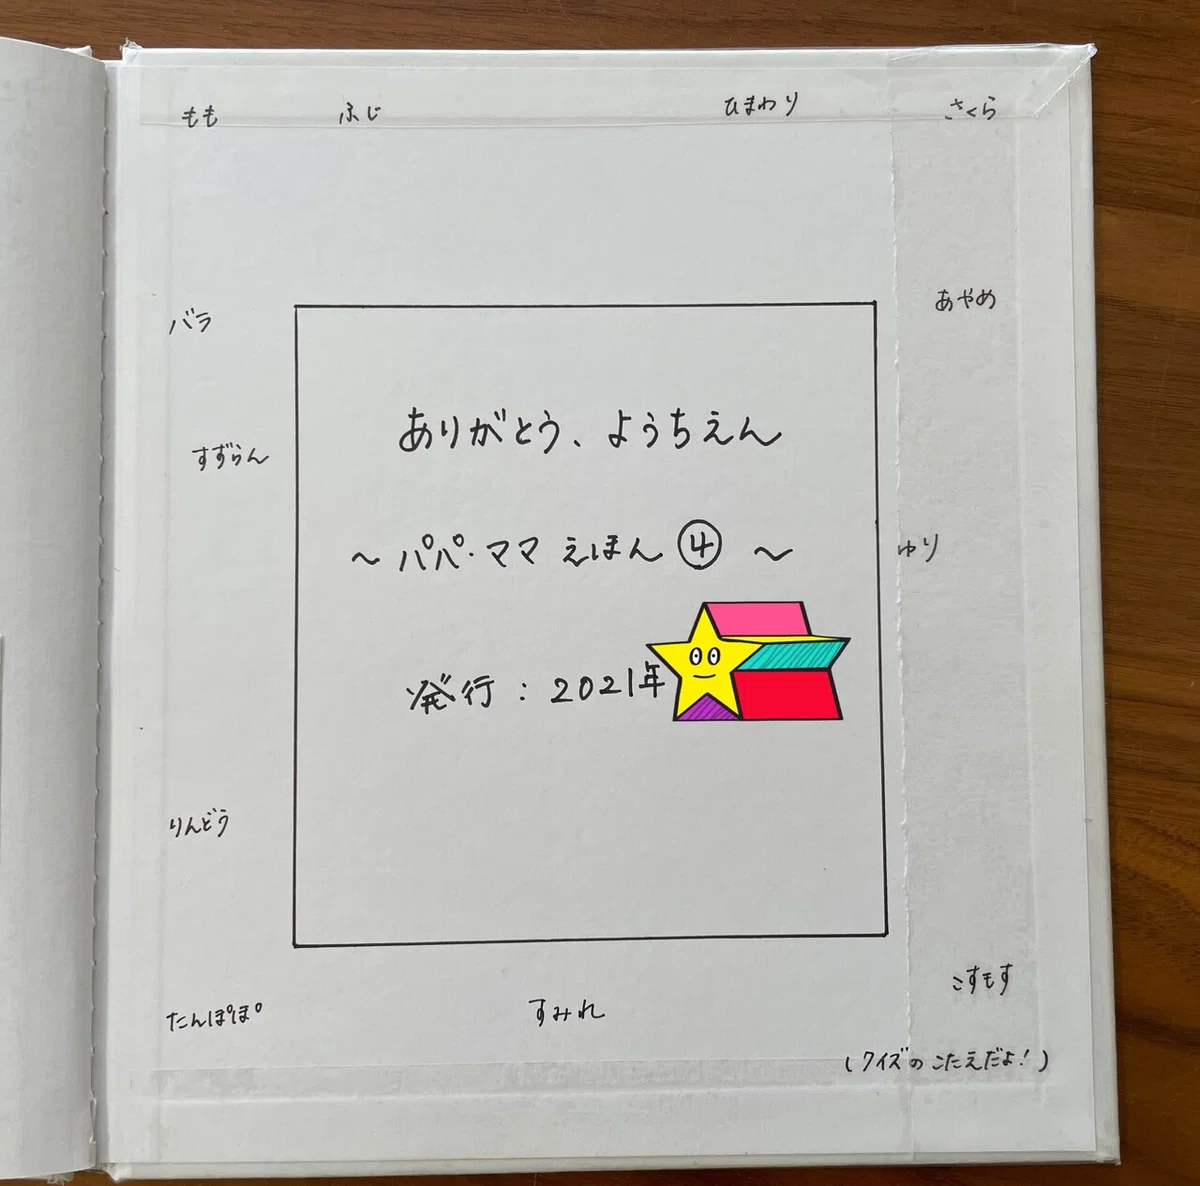 もも ふじ ひまわり さくら
あやめ
バラ
ありがとう、ようちえん
すずらん
～パパ・ママ えほん④～
ゆり
発行：2021年
りんどう
こすもす
たんぽぽ すみれ
(クイズのこたえだよ！)